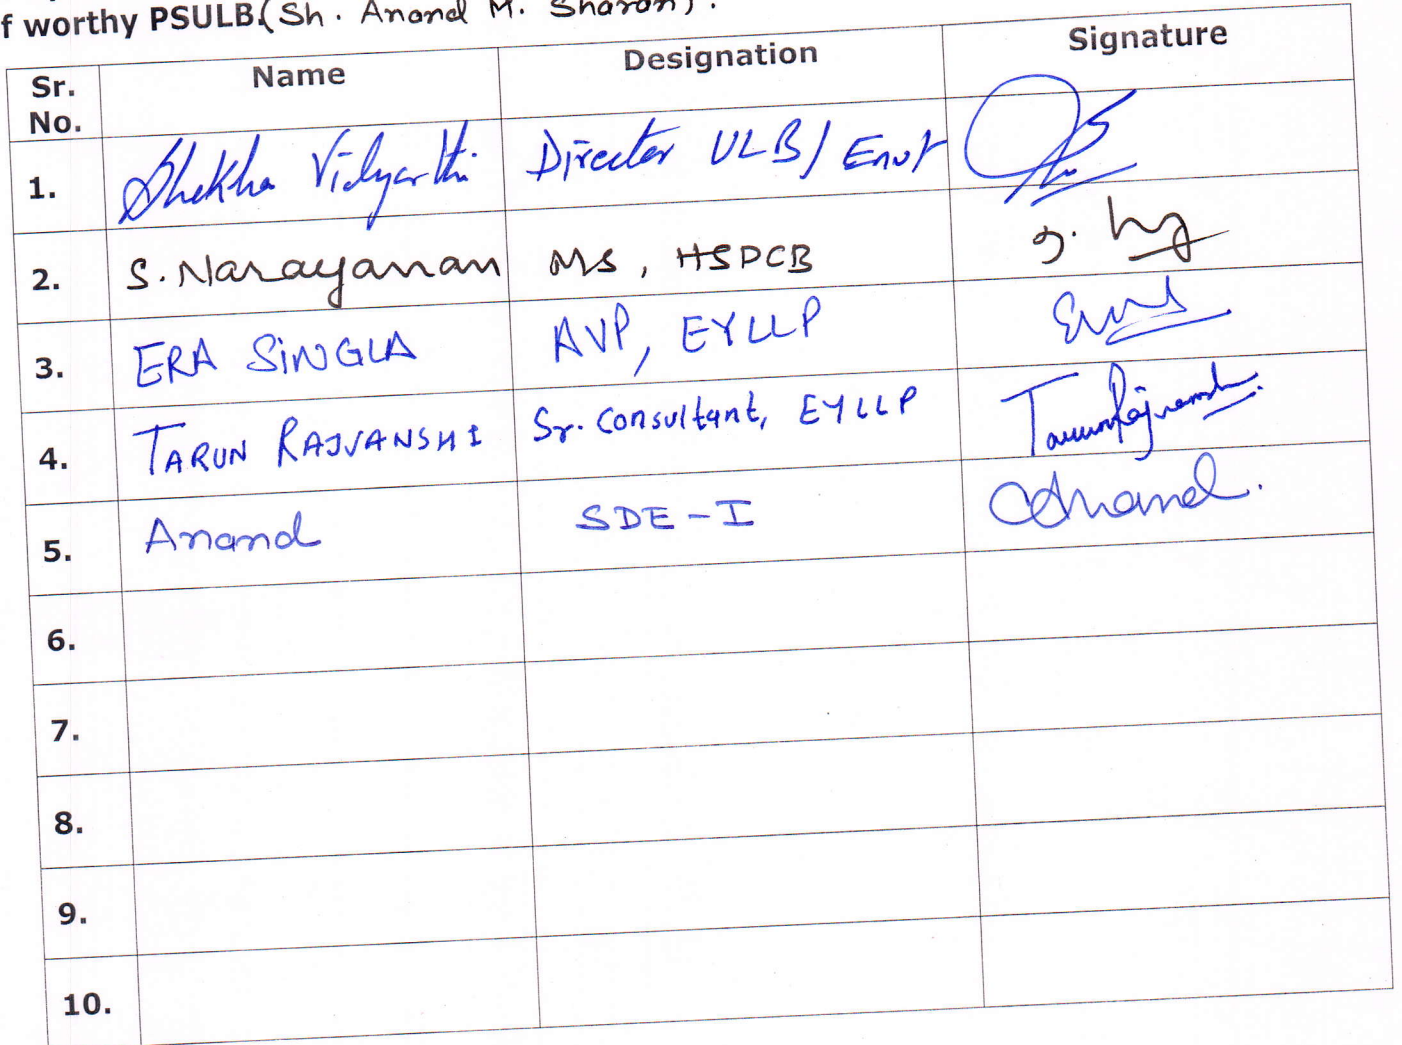 f worthy PSULB.(Sh. Anand M. Sharan).
Sr. No. Name Designation Signature
1. Shekhar Vidyarthi Director ULB/Envt
2. S. Narayanan MS, HSPCB
3. ERA SINGLA AVP, EYLLP
4. TARUN RAJVANSHI Sr. Consultant, EYLLP TarunRajvanshi.
5. Anand SDE-I Anand.
6.
7.
8.
9.
10.